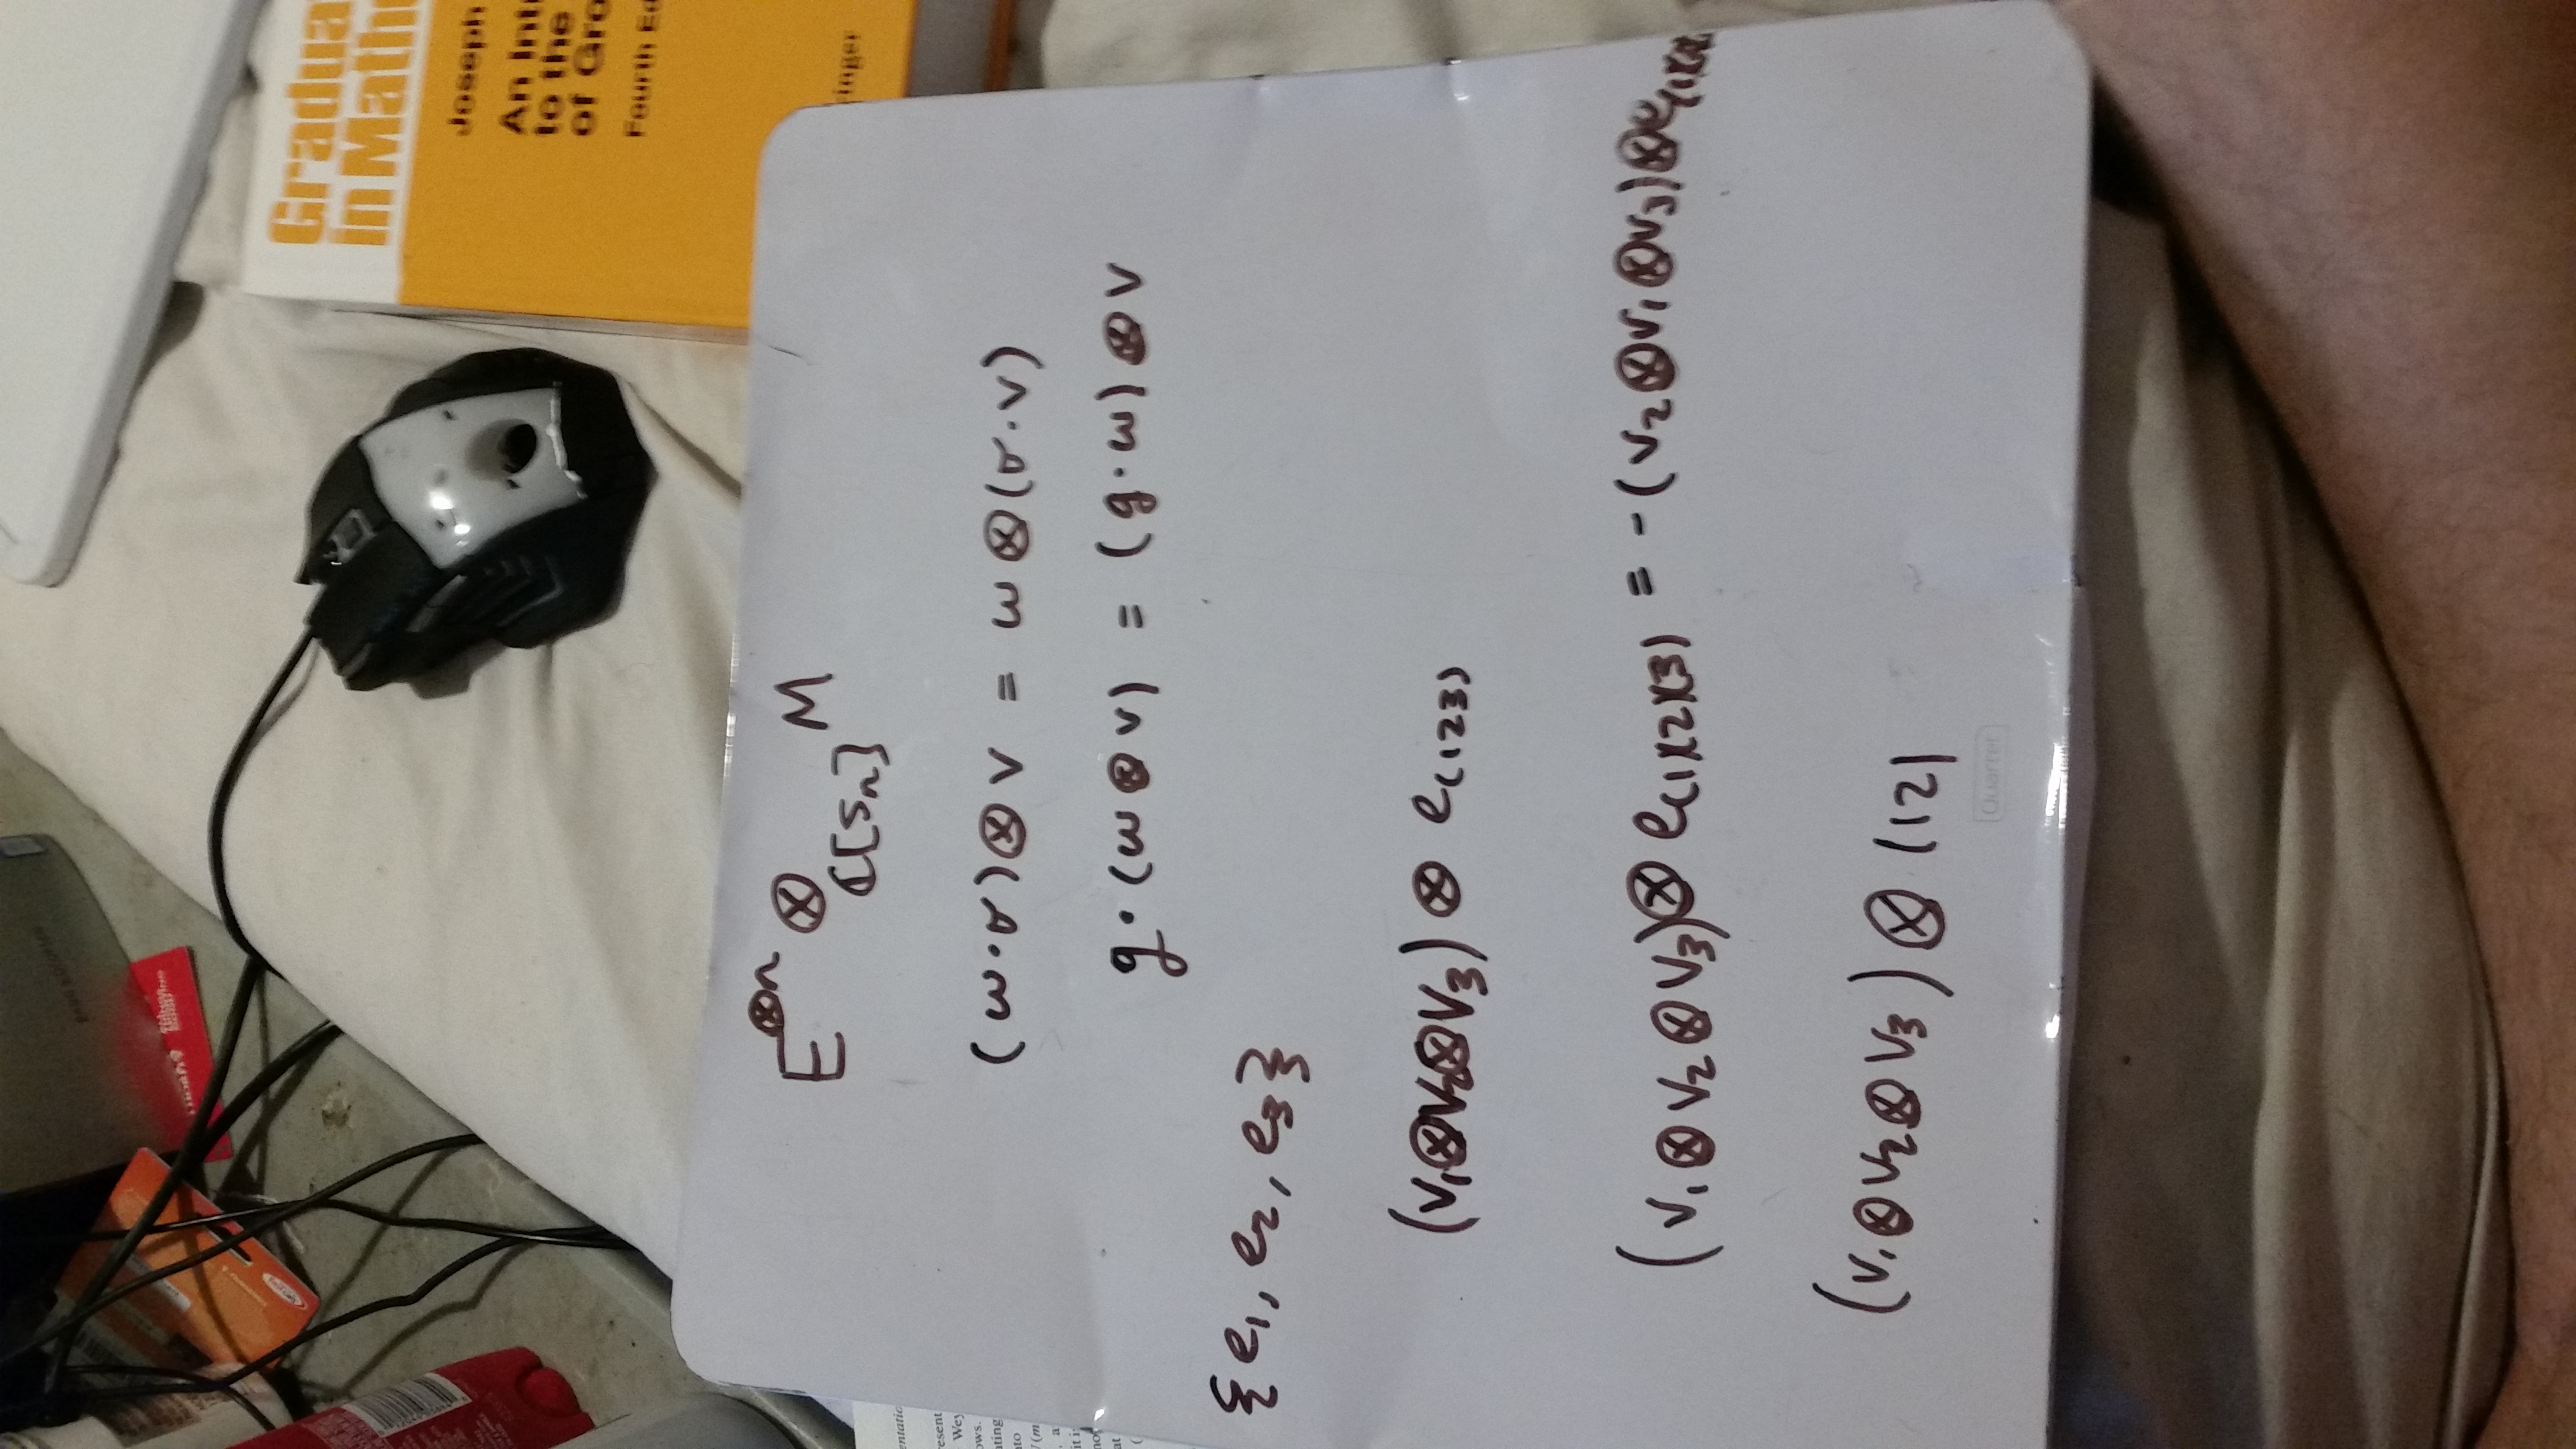 Gradua
in Mathe
Joseph
An Int
to the
of Gro
Fourth Ed
inger
entatio
resent
Wey
ows.
ating
nto
(m
, a
it i
no
at
E^{⊗n} ⊗_{ℂ[S_n]} M
(w·σ)⊗v = w⊗(σ·v)
g·(w⊗v) = (g·w)⊗v
{e_1, e_2, e_3}
(v_1⊗v_2⊗v_3) ⊗ e_{(123)}
(v_1⊗v_2⊗v_3)⊗ e_{(1)(2)(3)} = -(v_2⊗v_1⊗v_3)⊗e
(v_1⊗v_2⊗v_3) ⊗ (12)
Quarter